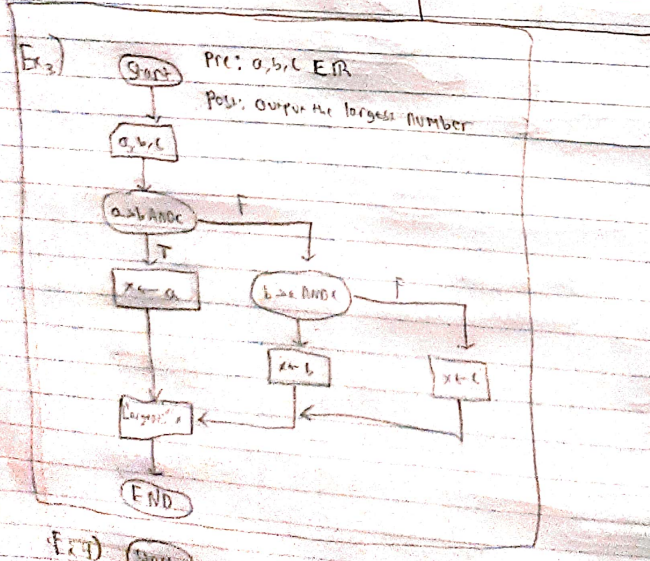 Ex3)
Start
Pre: a,b,c ∈ ℝ
Post: output the largest number
a,b,c
a>b AND c
F
T
x ← a
b>a AND c
F
x ← b
x ← c
Largest: x
END
Ex4)
Start